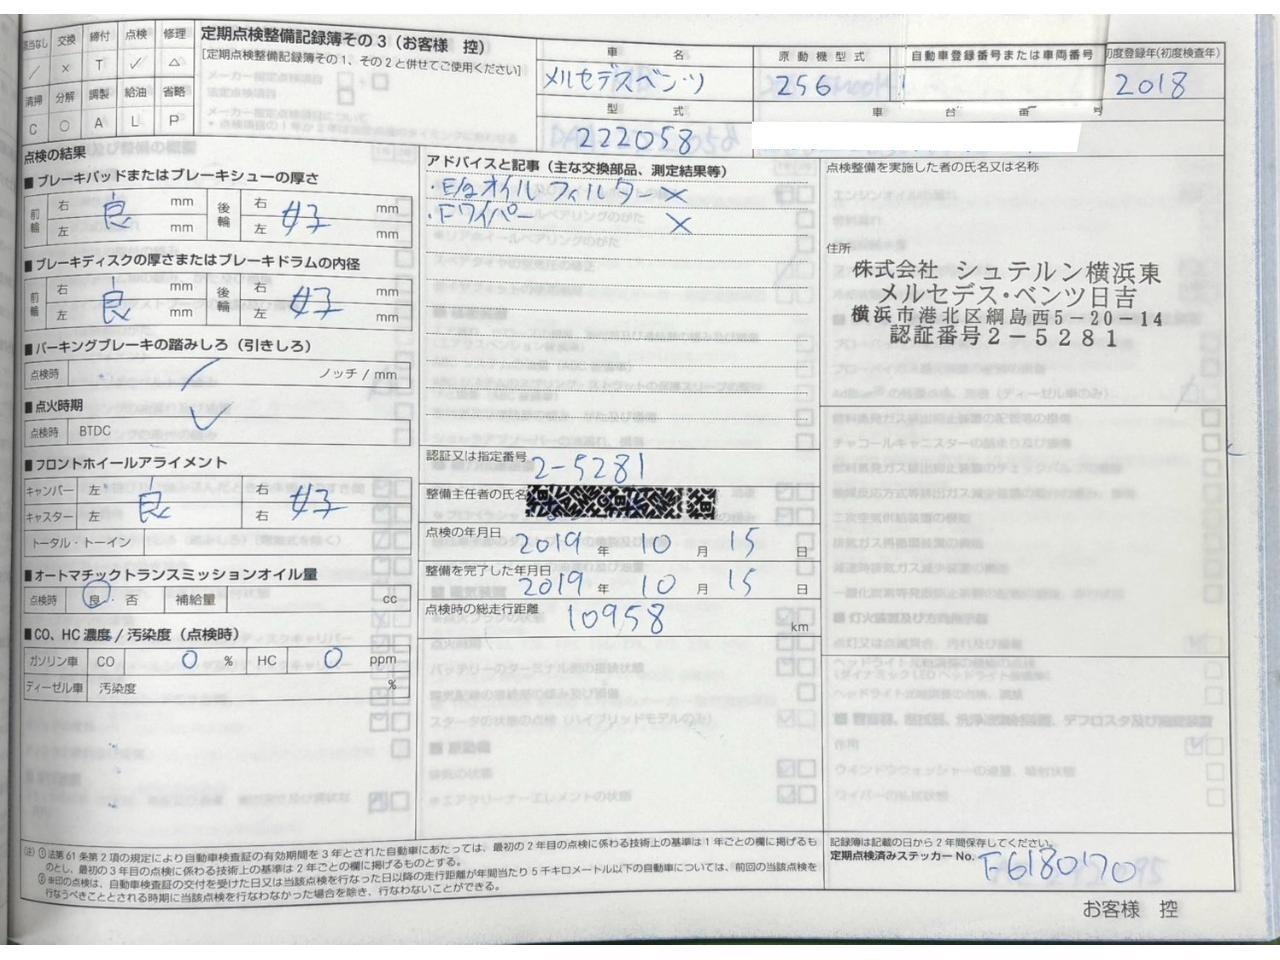 該当なし 交換 締付 点検 修理
/ × T ✓ △
清掃 分解 調整 給油 省略
C ○ A L P
定期点検整備記録簿その3(お客様 控)
[定期点検整備記録簿その1、その2と併せてご使用ください]
車 名
メルセデスベンツ
原動機型式
256
自動車登録番号または車両番号
初度登録年(初度検査年)
2018
型 式
222058
車 台 番 号
点検の結果
■ブレーキパッドまたはブレーキシューの厚さ
前輪 右 mm 後輪 右 mm
良 好
左 mm 左 mm
■ブレーキディスクの厚さまたはブレーキドラムの内径
前輪 右 mm 後輪 右 mm
良 好
左 mm 左 mm
■パーキングブレーキの踏みしろ(引きしろ)
点検時 / ノッチ / mm
■点火時期
点検時 BTDC ✓
■フロントホイールアライメント
キャンバー 左 右
良 好
キャスター 左 右
トータル・トーイン
■オートマチックトランスミッションオイル量
点検時 良・否 補給量 cc
■CO、HC濃度/汚染度(点検時)
ガソリン車 CO 0 % HC 0 ppm
ディーゼル車 汚染度 %
アドバイスと記事(主な交換部品、測定結果等)
・E/gオイルフィルター ×
・Fワイパー ×
認証又は指定番号
2-5281
整備主任者の氏名
点検の年月日
2019 年 10 月 15 日
整備を完了した年月日
2019 年 10 月 15 日
点検時の総走行距離
10958 km
点検整備を実施した者の氏名又は名称
住所
株式会社 シュテルン横浜東
メルセデス・ベンツ日吉
横浜市港北区綱島西5-20-14
認証番号2-5281
(注) ①法第61条第2項の規定により自動車検査証の有効期間を3年とされた自動車にあたっては、最初の2年目の点検に係わる技術上の基準は1年ごとの欄に掲げるも
のとし、最初の3年目の点検に係わる技術上の基準は2年ごとの欄に掲げるものとする。
②※印の点検は、自動車検査証の交付を受けた日又は当該点検を行なった日以降の走行距離が年間当たり5千キロメートル以下の自動車については、前回の当該点検を
行なうべきこととされる時期に当該点検を行なわなかった場合を除き、行なわないことができる。
記録簿は記載の日から2年間保存してください。
定期点検済みステッカーNo.
F6180170
お客様 控